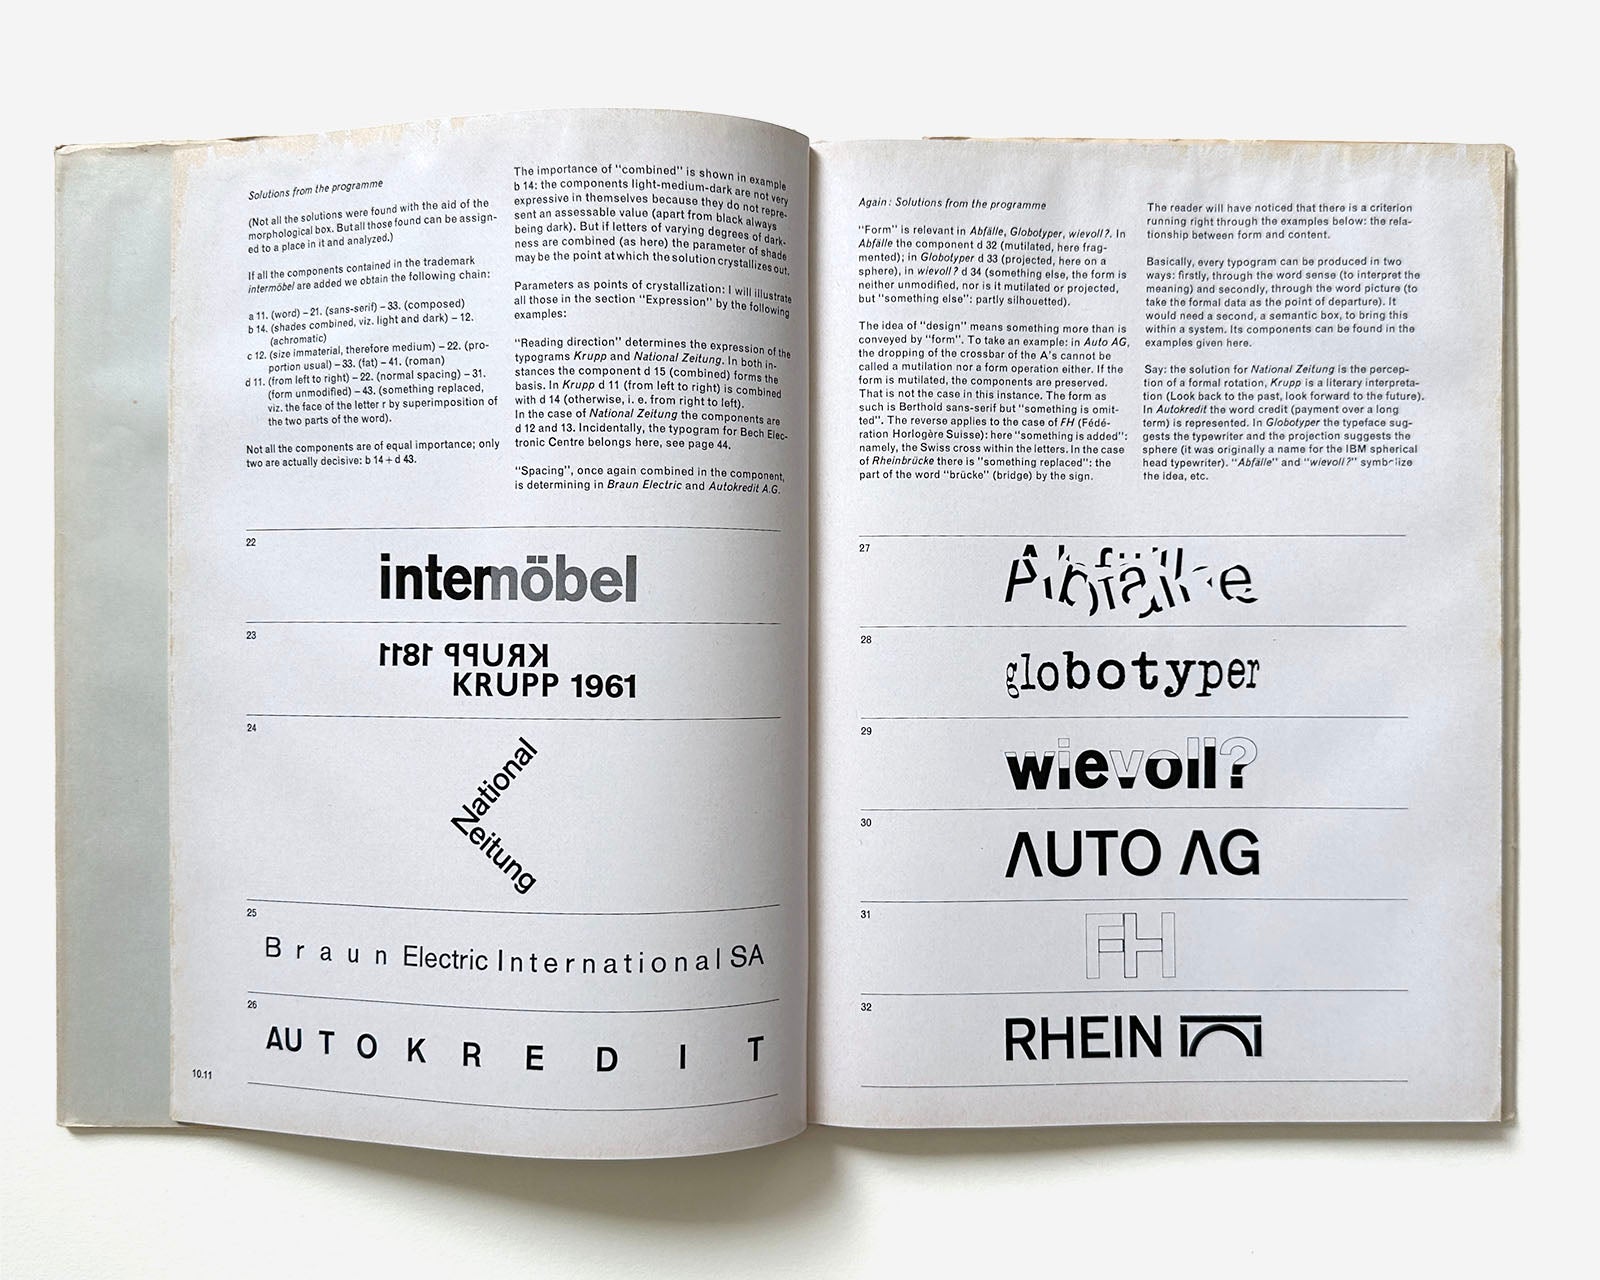 Solutions from the programme
(Not all the solutions were found with the aid of the
morphological box. But all those found can be assign-
ed to a place in it and analyzed.)
If all the components contained in the trademark
intermöbel are added we obtain the following chain:
a 11. (word) – 21. (sans-serif) – 33. (composed)
b 14. (shades combined, viz. light and dark) – 12.
(achromatic)
c 12. (size immaterial, therefore medium) – 22. (pro-
portion usual) – 33. (fat) – 41. (roman)
d 11. (from left to right) – 22. (normal spacing) – 31.
(form unmodified) – 43. (something replaced,
viz. the face of the letter r by superimposition of
the two parts of the word).
Not all the components are of equal importance; only
two are actually decisive: b 14 + d 43.
The importance of "combined" is shown in example
b 14: the components light-medium-dark are not very
expressive in themselves because they do not repre-
sent an assessable value (apart from black always
being dark). But if letters of varying degrees of dark-
ness are combined (as here) the parameter of shade
may be the point at which the solution crystallizes out.
Parameters as points of crystallization: I will illustrate
all those in the section "Expression" by the following
examples:
"Reading direction" determines the expression of the
typograms Krupp and National Zeitung. In both in-
stances the component d 15 (combined) forms the
basis. In Krupp d 11 (from left to right) is combined
with d 14 (otherwise, i. e. from right to left).
In the case of National Zeitung the components are
d 12 and 13. Incidentally, the typogram for Bech Elec-
tronic Centre belongs here, see page 44.
"Spacing", once again combined in the component,
is determining in Braun Electric and Autokredit A.G.
22
intermöbel
23
KRUPP 1811
KRUPP 1961
24
National
Zeitung
25
Braun Electric International SA
26
AUTOKREDIT
10.11
Again: Solutions from the programme
"Form" is relevant in Abfälle, Globotyper, wievoll?. In
Abfälle the component d 32 (mutilated, here frag-
mented); in Globotyper d 33 (projected, here on a
sphere), in wievoll? d 34 (something else, the form is
neither unmodified, nor is it mutilated or projected,
but "something else": partly silhouetted).
The idea of "design" means something more than is
conveyed by "form". To take an example: in Auto AG,
the dropping of the crossbar of the A's cannot be
called a mutilation nor a form operation either. If the
form is mutilated, the components are preserved.
That is not the case in this instance. The form as
such is Berthold sans-serif but "something is omit-
ted". The reverse applies to the case of FH (Fédé-
ration Horlogère Suisse): here "something is added":
namely, the Swiss cross within the letters. In the case
of Rheinbrücke there is "something replaced": the
part of the word "brücke" (bridge) by the sign.
The reader will have noticed that there is a criterion
running right through the examples below: the rela-
tionship between form and content.
Basically, every typogram can be produced in two
ways: firstly, through the word sense (to interpret the
meaning) and secondly, through the word picture (to
take the formal data as the point of departure). It
would need a second, a semantic box, to bring this
within a system. Its components can be found in the
examples given here.
Say: the solution for National Zeitung is the percep-
tion of a formal rotation, Krupp is a literary interpreta-
tion (Look back to the past, look forward to the future).
In Autokredit the word credit (payment over a long
term) is represented. In Globotyper the typeface sug-
gests the typewriter and the projection suggests the
sphere (it was originally a name for the IBM spherical
head typewriter). "Abfälle" and "wievoll?" symbolize
the idea, etc.
27
Abfälle
28
globotyper
29
wievoll?
30
AUTO AG
31
FH
32
RHEIN